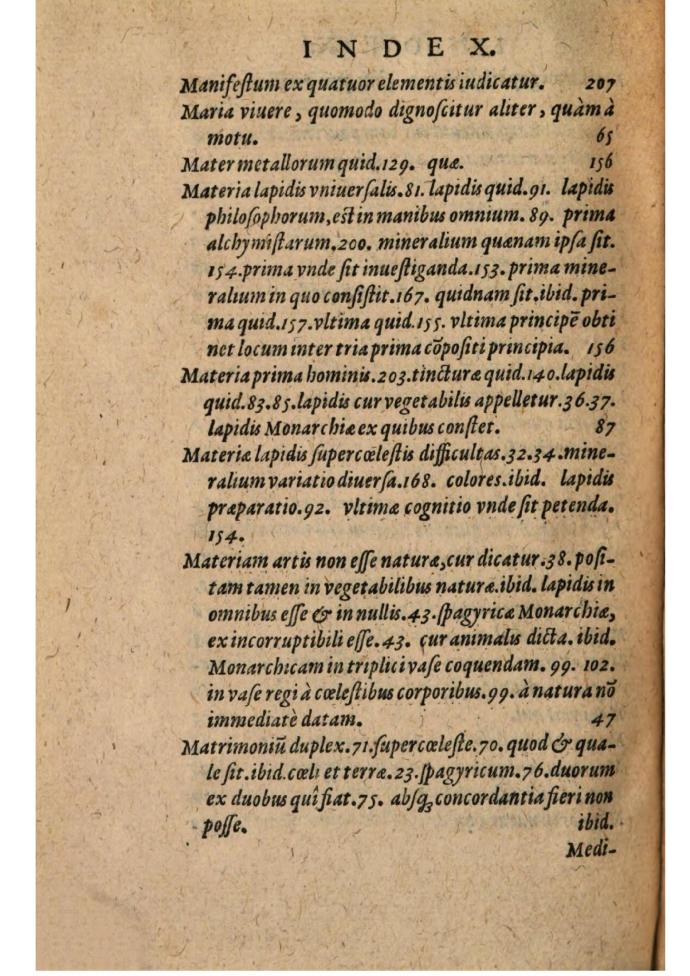 INDEX.
Manifeſtum ex quatuor elementis iudicatur. 207
Maria viuere, quomodo dignoſcitur aliter, quàm à
motu. 65
Mater metallorum quid.129. quæ. 156
Materia lapidis vniuerſalis.81. lapidis quid.91. lapidis
philoſophorum,eſt in manibus omnium. 89. prima
alchymiſtarum.200. mineralium quænam ipſa ſit.
154.prima vnde ſit inueſtiganda.153.prima mine-
ralium in quo conſiſtit.167. quidnam ſit.ibid. pri-
ma quid.157.vltima quid.155. vltima principẽ obti
net locum inter tria prima cõpoſiti principia. 156
Materia prima hominis.203.tincturæ quid.140.lapidis
quid.83.85.lapidis cur vegetabilis appelletur.36.37.
lapidis Monarchiæ ex quibus conſtet. 87
Materiæ lapidis ſupercœleſtis difficultas.32.34.mine-
ralium variatio diuerſa.168. colores.ibid. lapidis
præparatio.92. vltimæ cognitio vnde ſit petenda.
154.
Materiam artis non eſſe naturæ,cur dicatur.38.poſi-
tam tamen in vegetabilibus naturæ.ibid. lapidis in
omnibus eſſe & in nullis.43.ſpagyricæ Monarchiæ,
ex incorruptibili eſſe.43. cur animalis dicta. ibid.
Monarchicam in triplici vaſe coquendam. 99. 102.
in vaſe regi à cœleſtibus corporibus.99. à natura nõ
immediatè datam. 47
Matrimoniũ duplex.71.ſupercœleſte.70. quod & qua-
le ſit.ibid.cœli et terræ.23.ſpagyricum.76.duorum
ex duobus quî fiat.75. abſq; concordantia fieri non
poſſe. ibid.
Medi-